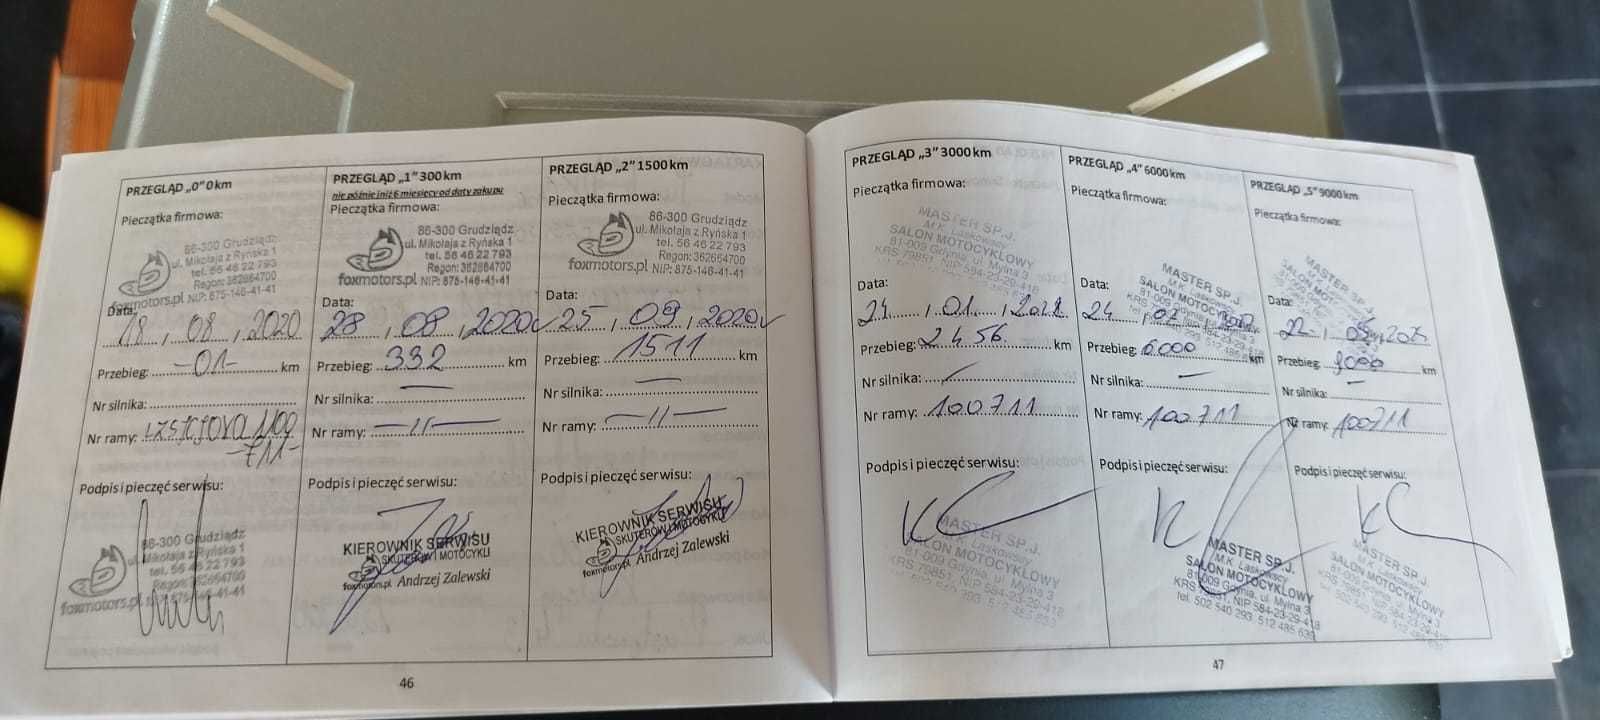 PRZEGLĄD „0” 0 km
Pieczątka firmowa:
86-300 Grudziądz
ul. Mikołaja z Ryńska 1
tel. 56 46 22 793
Regon: 362664700
foxmotors.pl NIP: 875-146-41-41
Data:
18, 08, 2020
Przebieg: -01- km
Nr silnika:
Nr ramy:
-711-
Podpis i pieczęć serwisu:
86-300 Grudziądz
ul. Mikołaja z Ryńska 1
tel. 56 46 22 793
Regon: 362664700
foxmotors.pl NIP: 875-146-41-41
PRZEGLĄD „1” 300 km
nie później niż 6 miesięcy od daty zakupu
Pieczątka firmowa:
86-300 Grudziądz
ul. Mikołaja z Ryńska 1
tel. 56 46 22 793
Regon: 362664700
foxmotors.pl NIP: 875-146-41-41
Data:
28, 08, 2020
Przebieg: 332 km
Nr silnika: —
Nr ramy: —11—
Podpis i pieczęć serwisu:
KIEROWNIK SERWISU
SKUTERÓW I MOTOCYKLI
foxmotors.pl Andrzej Zalewski
PRZEGLĄD „2” 1500 km
Pieczątka firmowa:
86-300 Grudziądz
ul. Mikołaja z Ryńska 1
tel. 56 46 22 793
Regon: 362664700
foxmotors.pl NIP: 875-146-41-41
Data:
25, 09, 2020
Przebieg: 1511 km
Nr silnika: —
Nr ramy: —11—
Podpis i pieczęć serwisu:
KIEROWNIK SERWISU
SKUTERÓW I MOTOCYKLI
foxmotors.pl Andrzej Zalewski
46
PRZEGLĄD „3” 3000 km
Pieczątka firmowa:
MASTER SP.J.
M.K. Laskowscy
SALON MOTOCYKLOWY
81-009 Gdynia, ul. Mylna 3
KRS 79851, NIP 584-23-29-418
Data:
21, 01,
Przebieg: 2456 km
Nr silnika: —
Nr ramy: 100711
Podpis i pieczęć serwisu:
MASTER SP.J.
M.K. Laskowscy
SALON MOTOCYKLOWY
81-009 Gdynia, ul. Mylna 3
KRS 79851, NIP 584-23-29-418
PRZEGLĄD „4” 6000 km
Pieczątka firmowa:
MASTER SP.J.
M.K. Laskowscy
SALON MOTOCYKLOWY
81-009 Gdynia, ul. Mylna 3
Data:
24
Przebieg: 6000 km
Nr silnika: —
Nr ramy: 100711
Podpis i pieczęć serwisu:
MASTER SP.J.
M.K. Laskowscy
SALON MOTOCYKLOWY
81-009 Gdynia, ul. Mylna 3
KRS 79851, NIP 584-23-29-418
tel. 502 540 293, 512 485 639
PRZEGLĄD „5” 9000 km
Pieczątka firmowa:
MASTER SP.J.
M.K. Laskowscy
SALON MOTOCYKLOWY
Data:
22
Przebieg: 9000 km
Nr silnika: —
Nr ramy: 100711
Podpis i pieczęć serwisu:
MASTER SP.J.
M.K. Laskowscy
SALON MOTOCYKLOWY
81-009 Gdynia, ul. Mylna 3
47